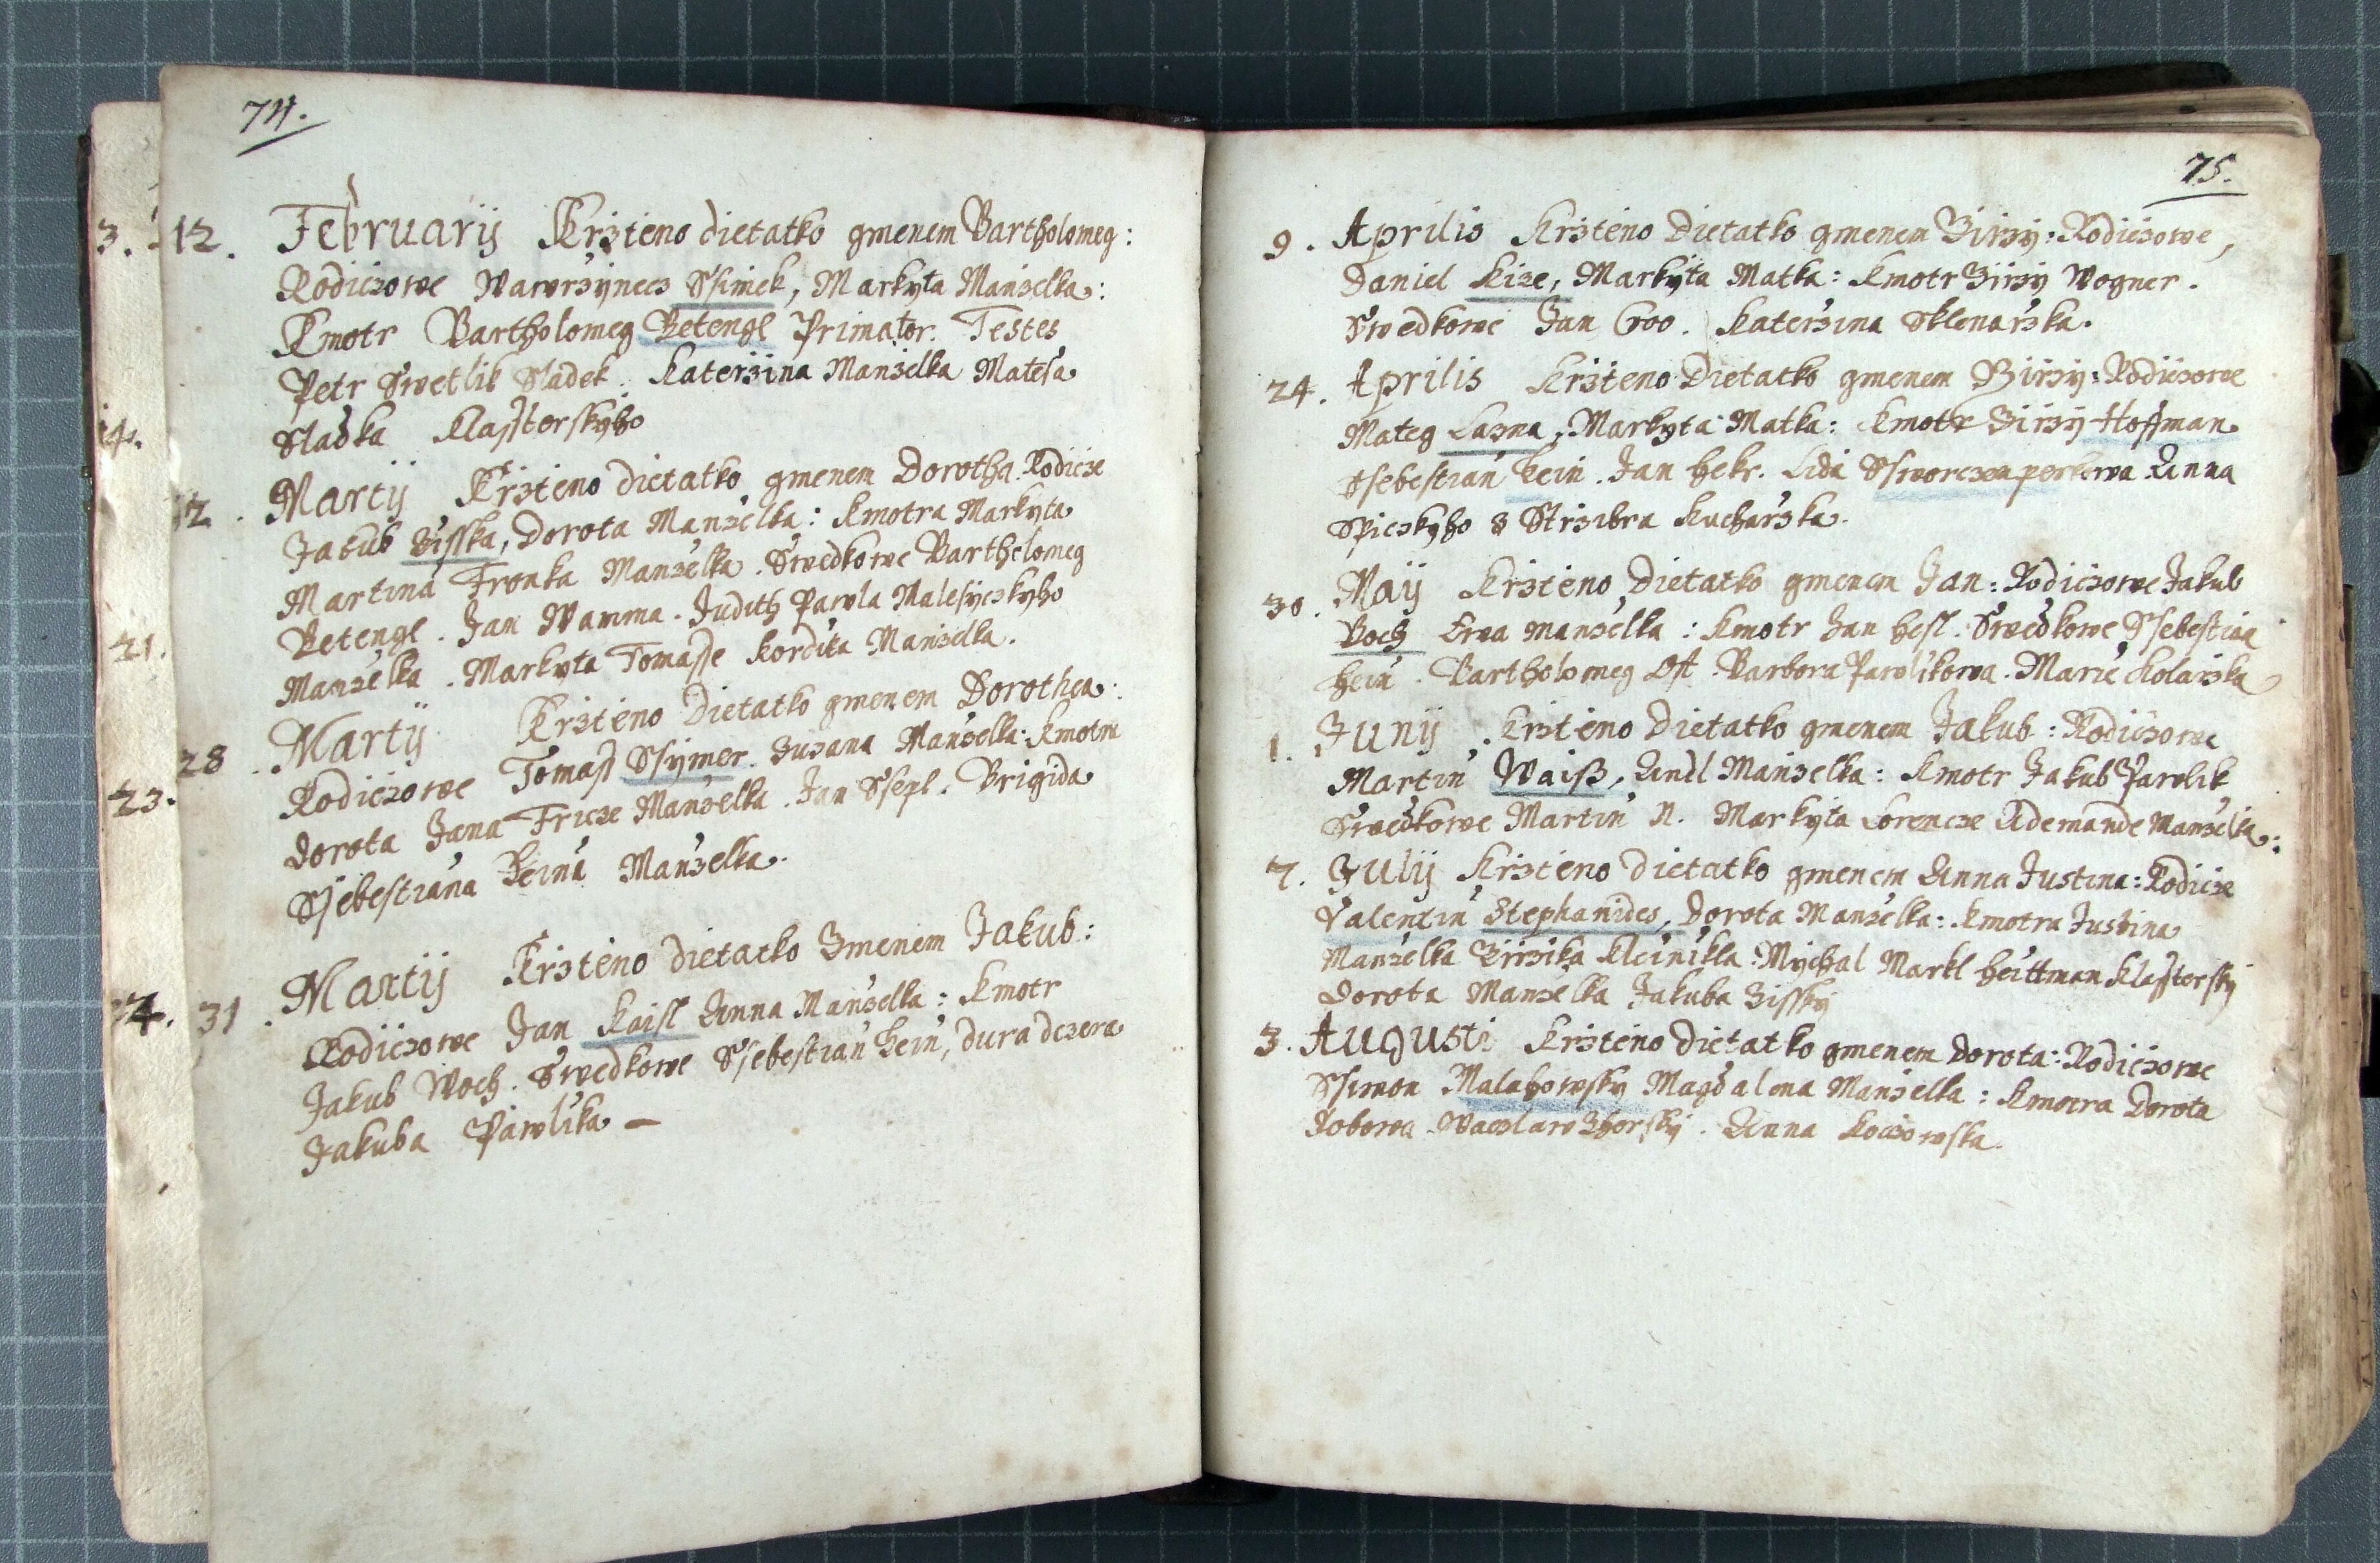 74.
12. Februarij Krzteno dietatko gmenem Bartholomeg:
Rodiczowe Wawrzynecz Ssimek, Markyta Manzelka:
Kmotr Bartholomeg Betengl Primator. Testes
Petr Swetlik Sladek. Katerzina Manzelka Matesa
Sladka Klasstorskyho
12. Martij Krzteno dietatko gmenem Dorotha. Rodicze
Jakub Zisska, Dorota Manzelka: Kmotra Markyta
Martina Fronka Manzelka. Swedkowe Bartholomeg
Betengl. Jan Wamma. Judith Pawla Malesyczkyho
Manzelka. Markyta Tomasse Kordika Manzelka.
28. Martij Krzteno Dietatko gmenem Dorothea:
Rodiczowe Tomass Ssymer. Zuzana Manzelka: Kmotra
Dorota Jana Fricze Manzelka. Jan Ssepl. Brigida
Ssebestiana Heina Manzelka.
31. Martij Krzteno dietatko Gmenem Jakub:
Rodiczowe Jan Kaisl Anna Manzelka: Kmotr
Jakub Woch. Swedkowe Ssebestian Hein, dura dczera
Jakuba Pawlika —
3.
14.
21.
23.
24.
75.
9. Aprilis Krzteno Dietatko gmenem Girzy: Rodiczowe,
Daniel Kize, Markyta Matka: Kmotr Girzy Wogner.
Swedkowe Jan Groo. Katerzina Sklenarzka.
24. Aprilis Krzteno Dietatko gmenem Girzy: Rodiczowe
Mateg Lazna, Markyta Matka: Kmotr Girzy Hoffman
Ssebestian Hein. Jan Hekr. Lida Anna
Spiczkyho z Strzibra Kucharzka.
30. Maij Krzteno Dietatko gmenem Jan: Rodiczowe Jakub
Boch Ewa manzelka: Kmotr Jan Hesl. Swedkowe Ssebestian
Hein. Bartholomeg Ost. Barbora Pawlikowa. Marie Kolarzka
1. Junij Krzteno Dietatko gmenem Jakub: Rodiczowe
Martin Waiß, Andl Manzelka: Kmotr Jakub Pawlik
Swedkowe Martin N. Markyta Lorencze Ademande Manzelka:
7. Julij Krzteno dietatko gmenem Anna Justina: Rodicze
Valentin Stephanides, Dorota Manzelka: Kmotra Justina
Manzelka Girzika Kleinikla. Mychal Markl Heittman Klasstorsky
Dorota Manzelka Jakuba Zissky
3. Augusti Krzteno Dietatko gmenem Dorota: Rodiczowe
Ssimon Malahowsky Magdalena Manzelka: Kmotra Dorota
Kobowa. Waczlaw Zhorsky. Anna Koczowska.